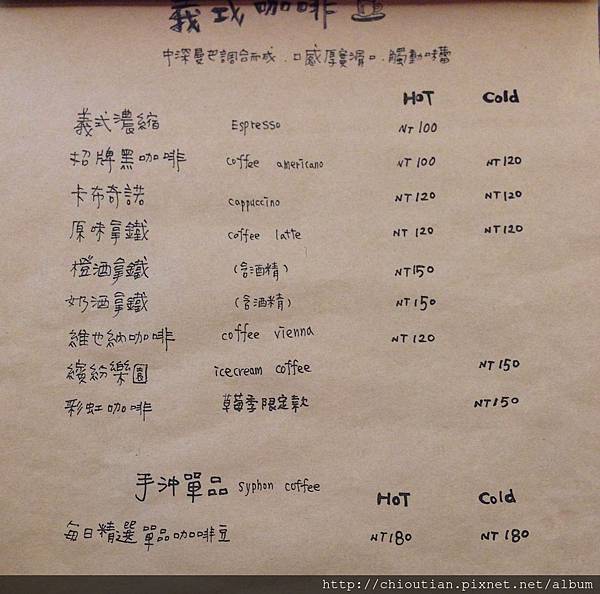 義式咖啡
中深曼巴調合而成．口感厚實滑口．觸動味蕾
HOT Cold
義式濃縮 Espresso NT 100
招牌黑咖啡 coffee americano NT 100 NT 120
卡布奇諾 cappuccino NT 120 NT 120
原味拿鐵 coffee latte NT 120 NT 120
橙酒拿鐵 (含酒精) NT 150
奶酒拿鐵 (含酒精) NT 150
維也納咖啡 coffee vienna NT 120
繽紛樂園 icecream coffee NT 150
彩虹咖啡 草莓季限定款 NT 150
手沖單品 syphon coffee HOT Cold
每日精選單品咖啡豆 NT 180 NT 180
http://chioutian.pixnet.net/album